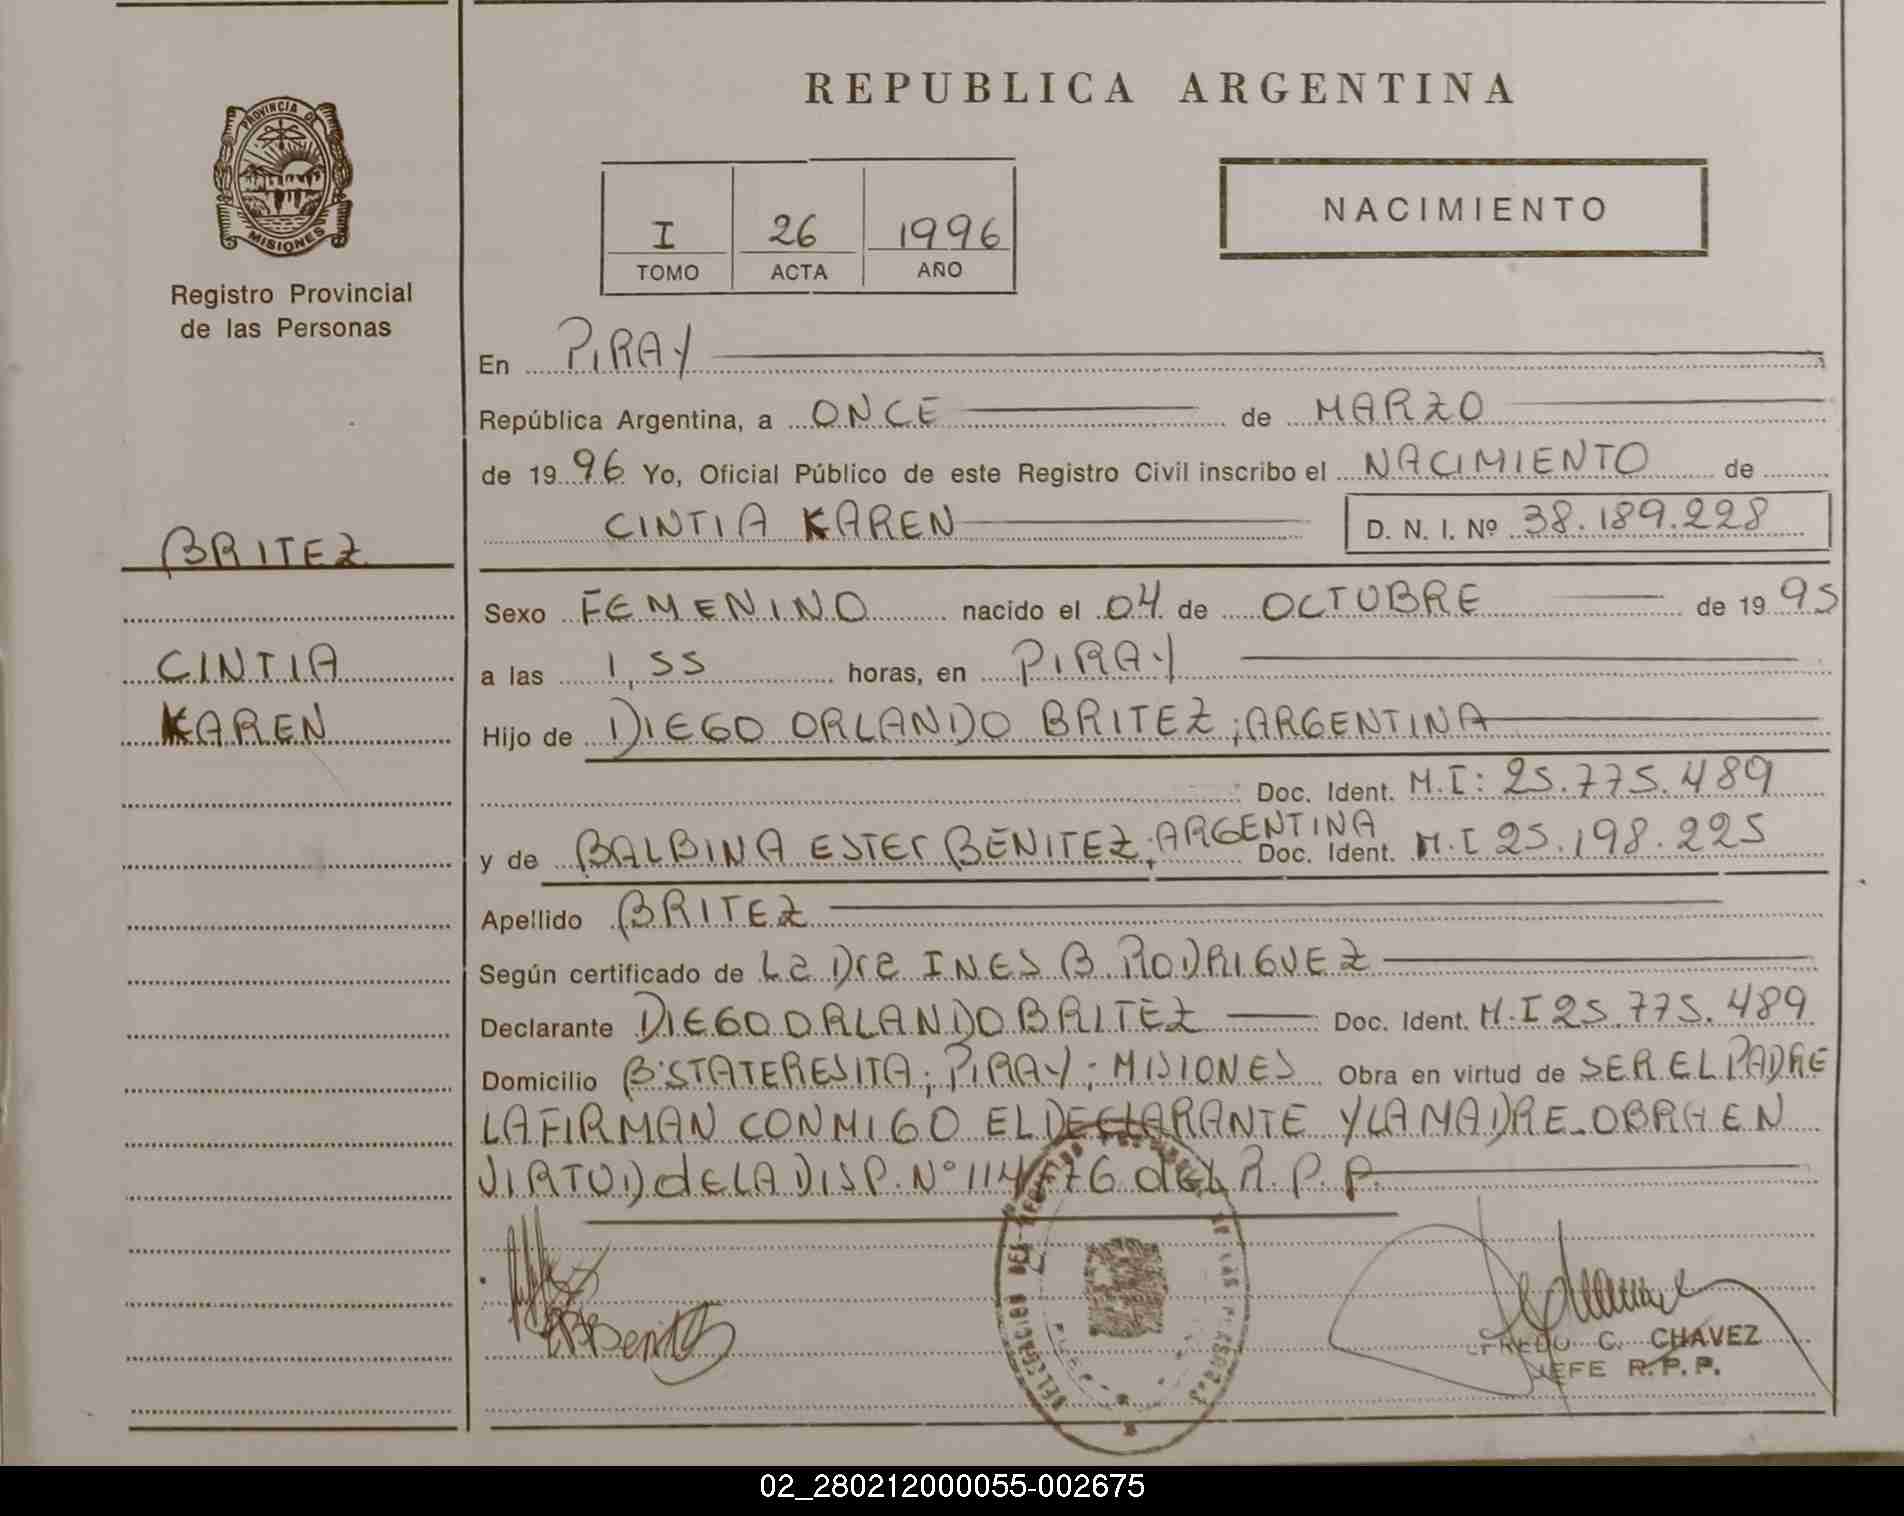 REPUBLICA ARGENTINA
PROVINCIA DE
MISIONES
Registro Provincial
de las Personas
I 26 1996
TOMO ACTA AÑO
NACIMIENTO
En PIRAY
República Argentina, a ONCE de MARZO
de 1996 Yo, Oficial Público de este Registro Civil inscribo el NACIMIENTO de
CINTIA KAREN D. N. I. Nº 38.189.228
BRITEZ
CINTIA
KAREN
Sexo FEMENINO nacido el 04 de OCTUBRE de 1995
a las 1,55 horas, en PIRAY
Hijo de DIEGO ORLANDO BRITEZ; ARGENTINA
Doc. Ident. M.I: 25.775.489
y de BALBINA ESTER BENITEZ; ARGENTINA Doc. Ident. M.I 25.198.225
Apellido BRITEZ
Según certificado de La Dra INES B. RODRIGUEZ
Declarante DIEGO ORLANDO BRITEZ Doc. Ident. M.I 25.775.489
Domicilio Bº STA TERESITA; PIRAY; MISIONES Obra en virtud de SER EL PADRE
LA FIRMAN CONMIGO EL DECLARANTE Y LA MADRE. OBRA EN
VIRTUD de LA DISP. Nº 114/76 del R.P.P.
C. CHAVEZ
JEFE R.P.P.
02_280212000055-002675